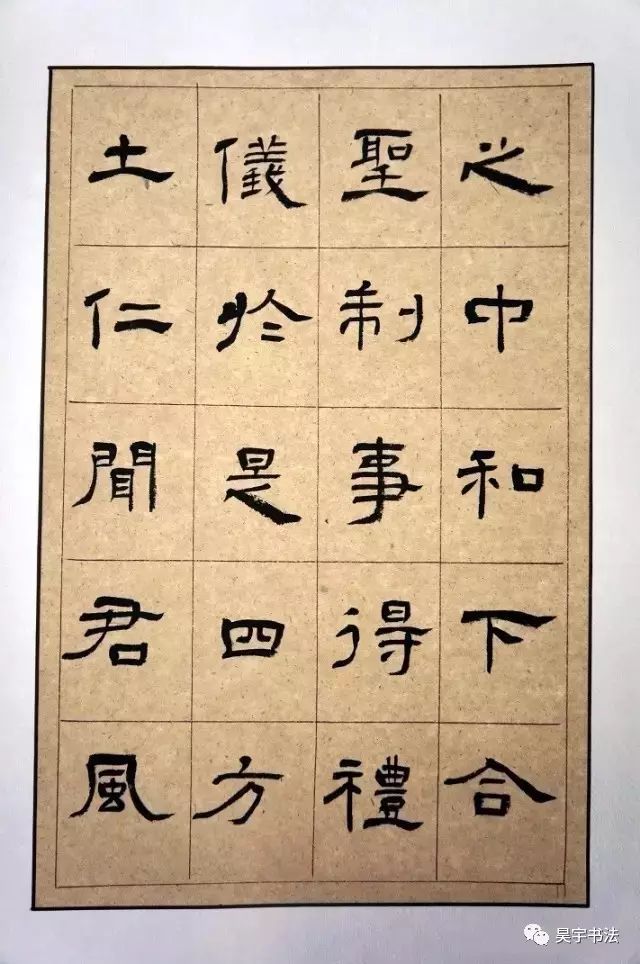 之中和下合
聖制事得禮
儀於是四方
土仁聞君風
昊宇书法